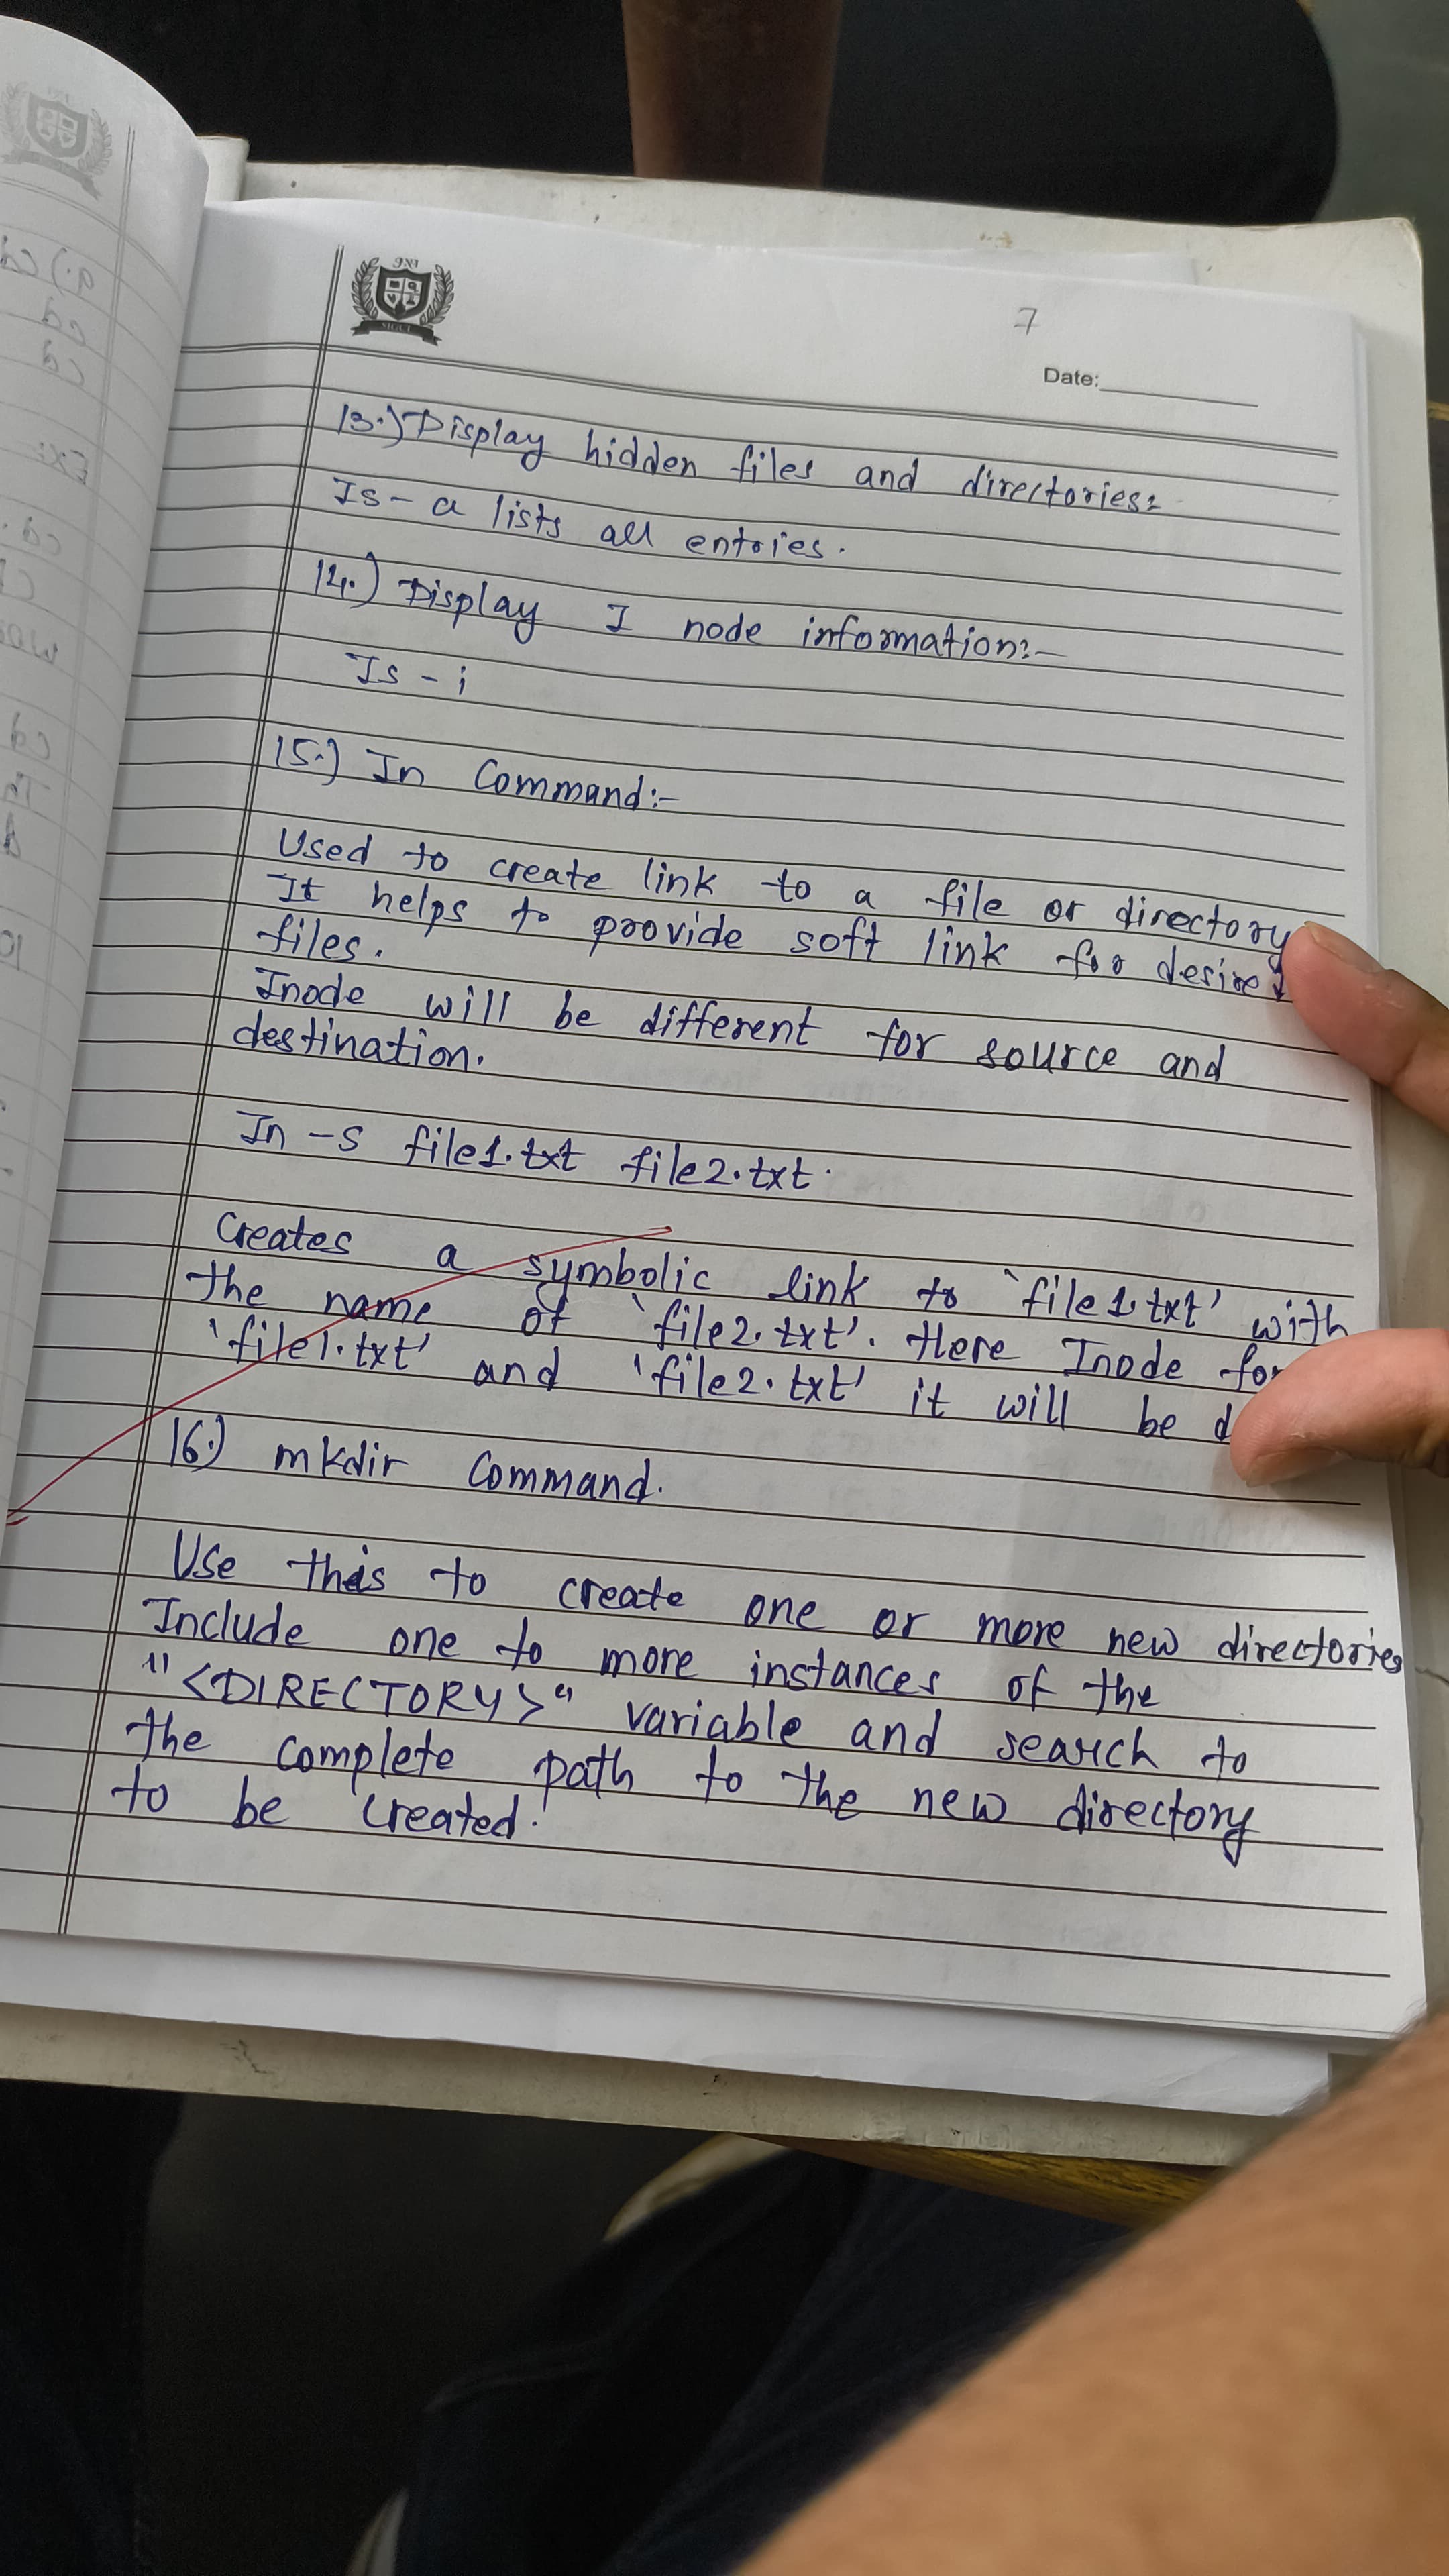 7
Date:
13.) Display hidden files and directories:
Is - a lists all entries.
14.) Display I node information:-
Is - i
15.) In Command:-
Used to create link to a file or directory
It helps to provide soft link for desire
files.
Inode will be different for source and
destination.
In -s file1.txt file2.txt.
Creates a symbolic link to `file1.txt' with
the name of `file2.txt'. Here Inode for
'file1.txt' and 'file2.txt' it will be
16.) mkdir Command.
Use this to create one or more new directories
Include one to more instances of the
"<DIRECTORY>" variable and search to
the complete path to the new directory
to be created.